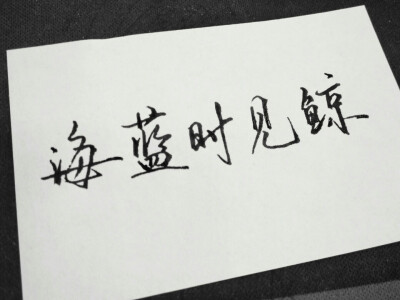 海蓝时见鲸